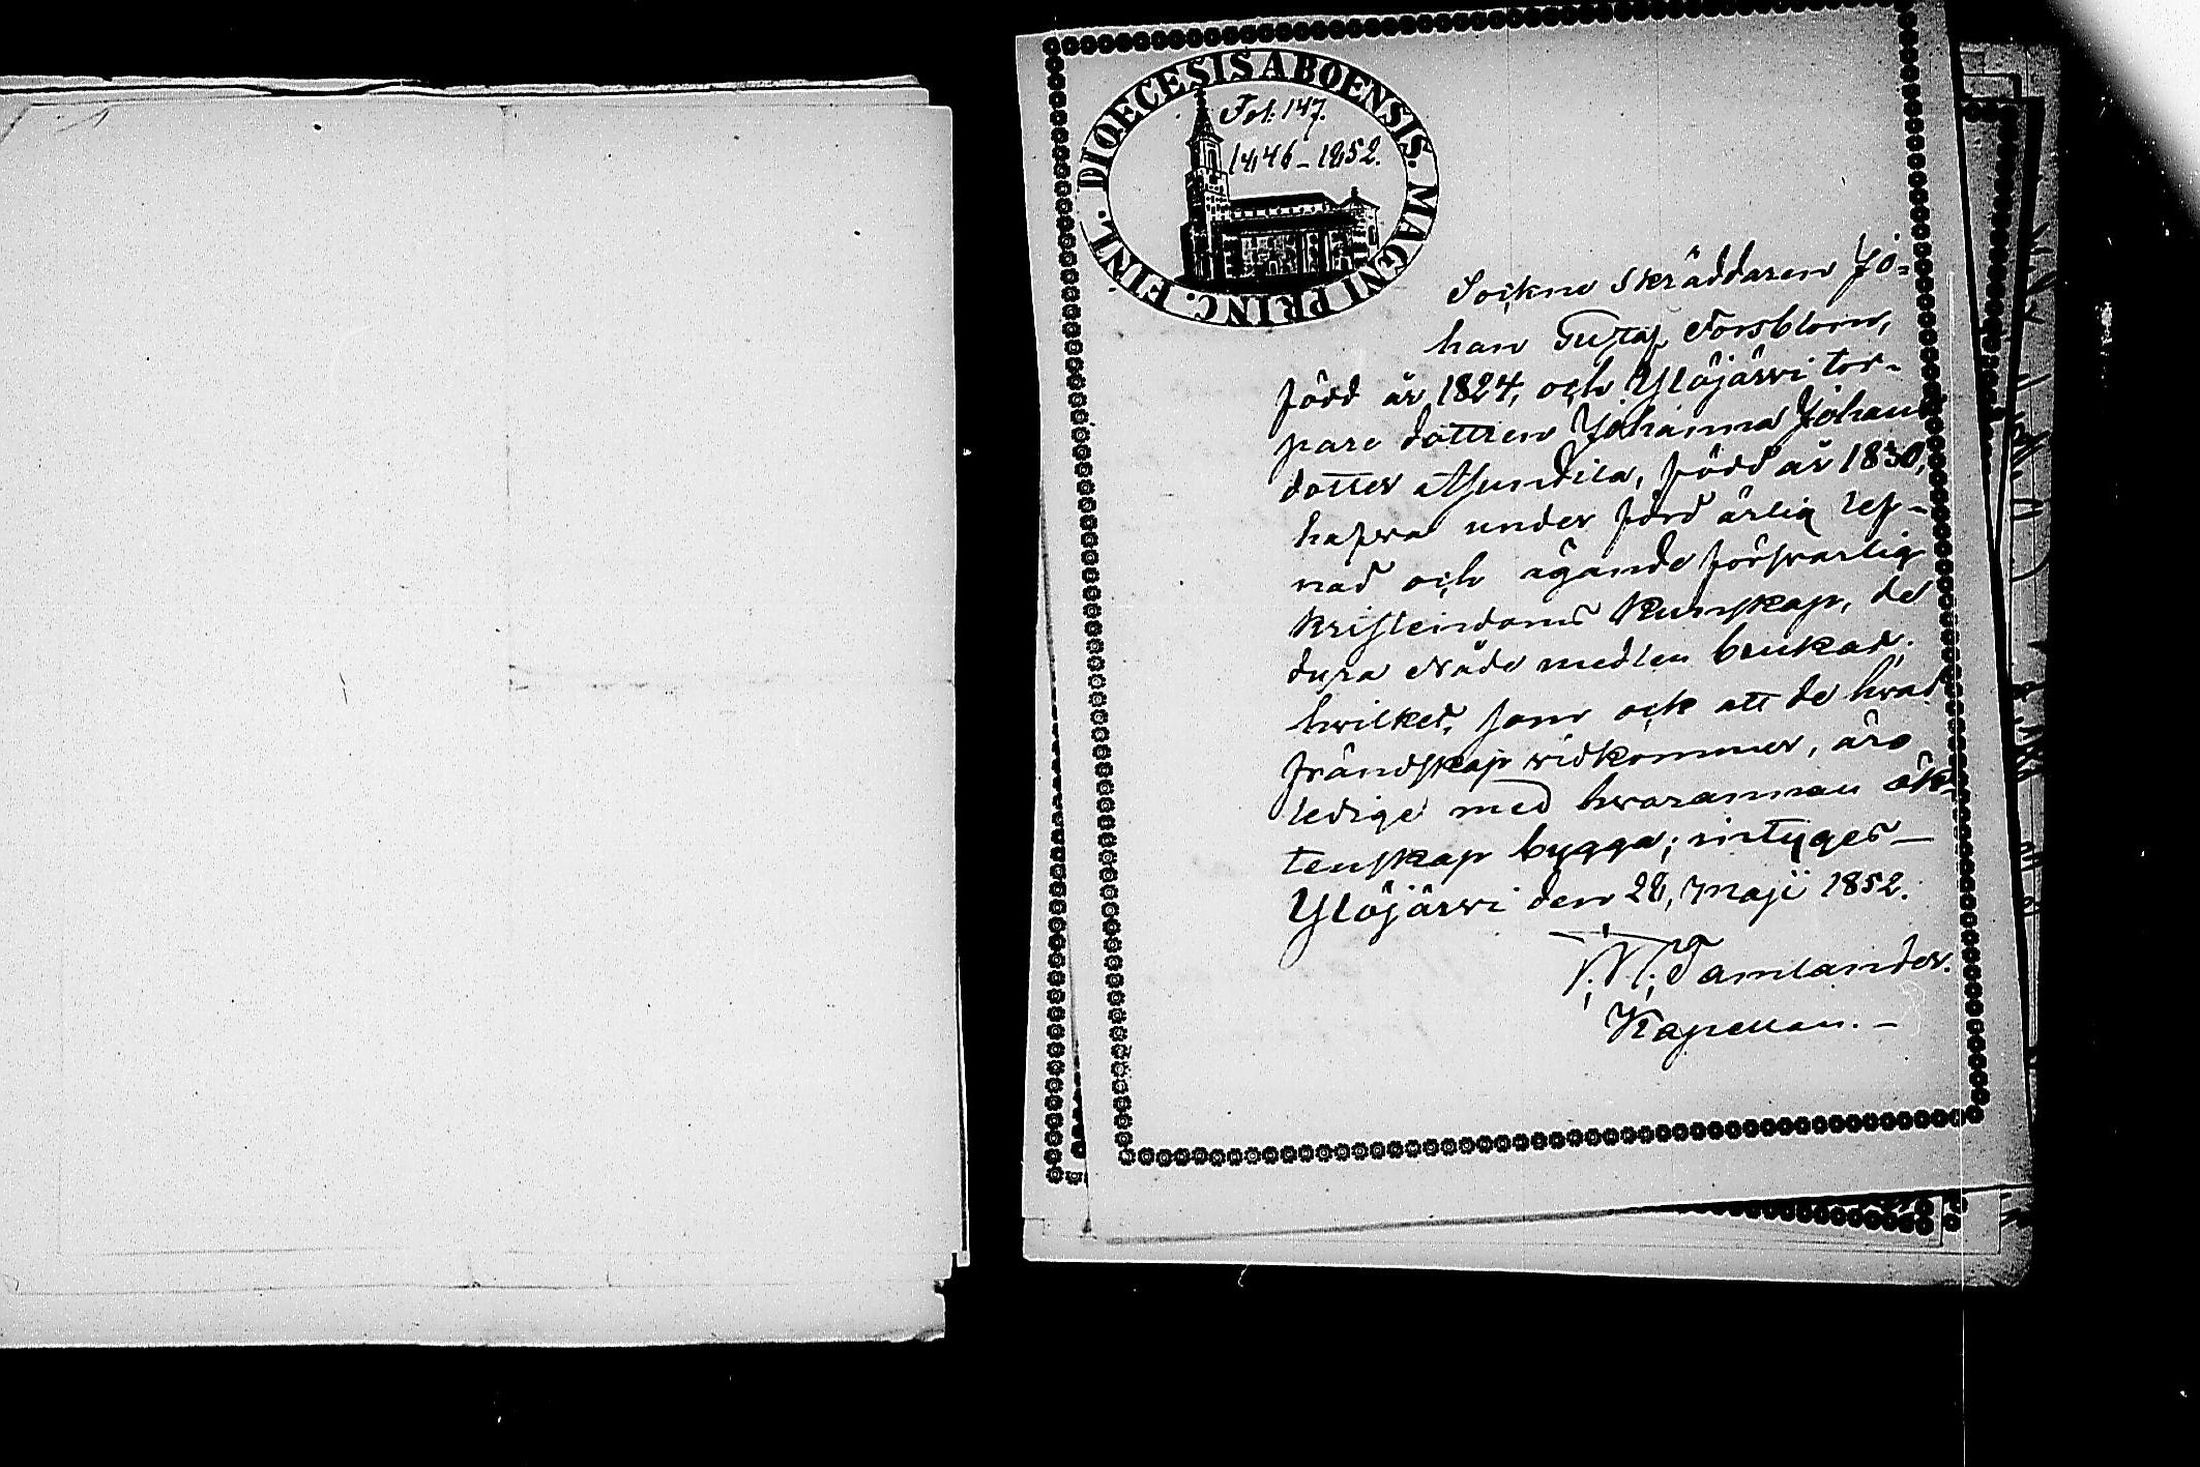 DIOECESIS ABOENSIS. MAGNI PRINC. FINL.
Fol: 147.
1846-1852.
Sockne skräddaren Jo-
han Gustaf Forsblom,
född år 1824, och Ylöjärvi tor-
pare dottren Johanna Johans
dotter född år 1830,
hafva under förd ärlig lef-
nad och ägande försvarlig
kristendoms kunskap, de
dyra Nåde medlen brukat.
hvilket, som ock att de hvad
frändskap vidkommer, äro
ledige med hvarannan äk-
tenskap bygga; intyges—
Ylöjärvi den 28, Maji 1852.
Tamlander.
Kapellan. —